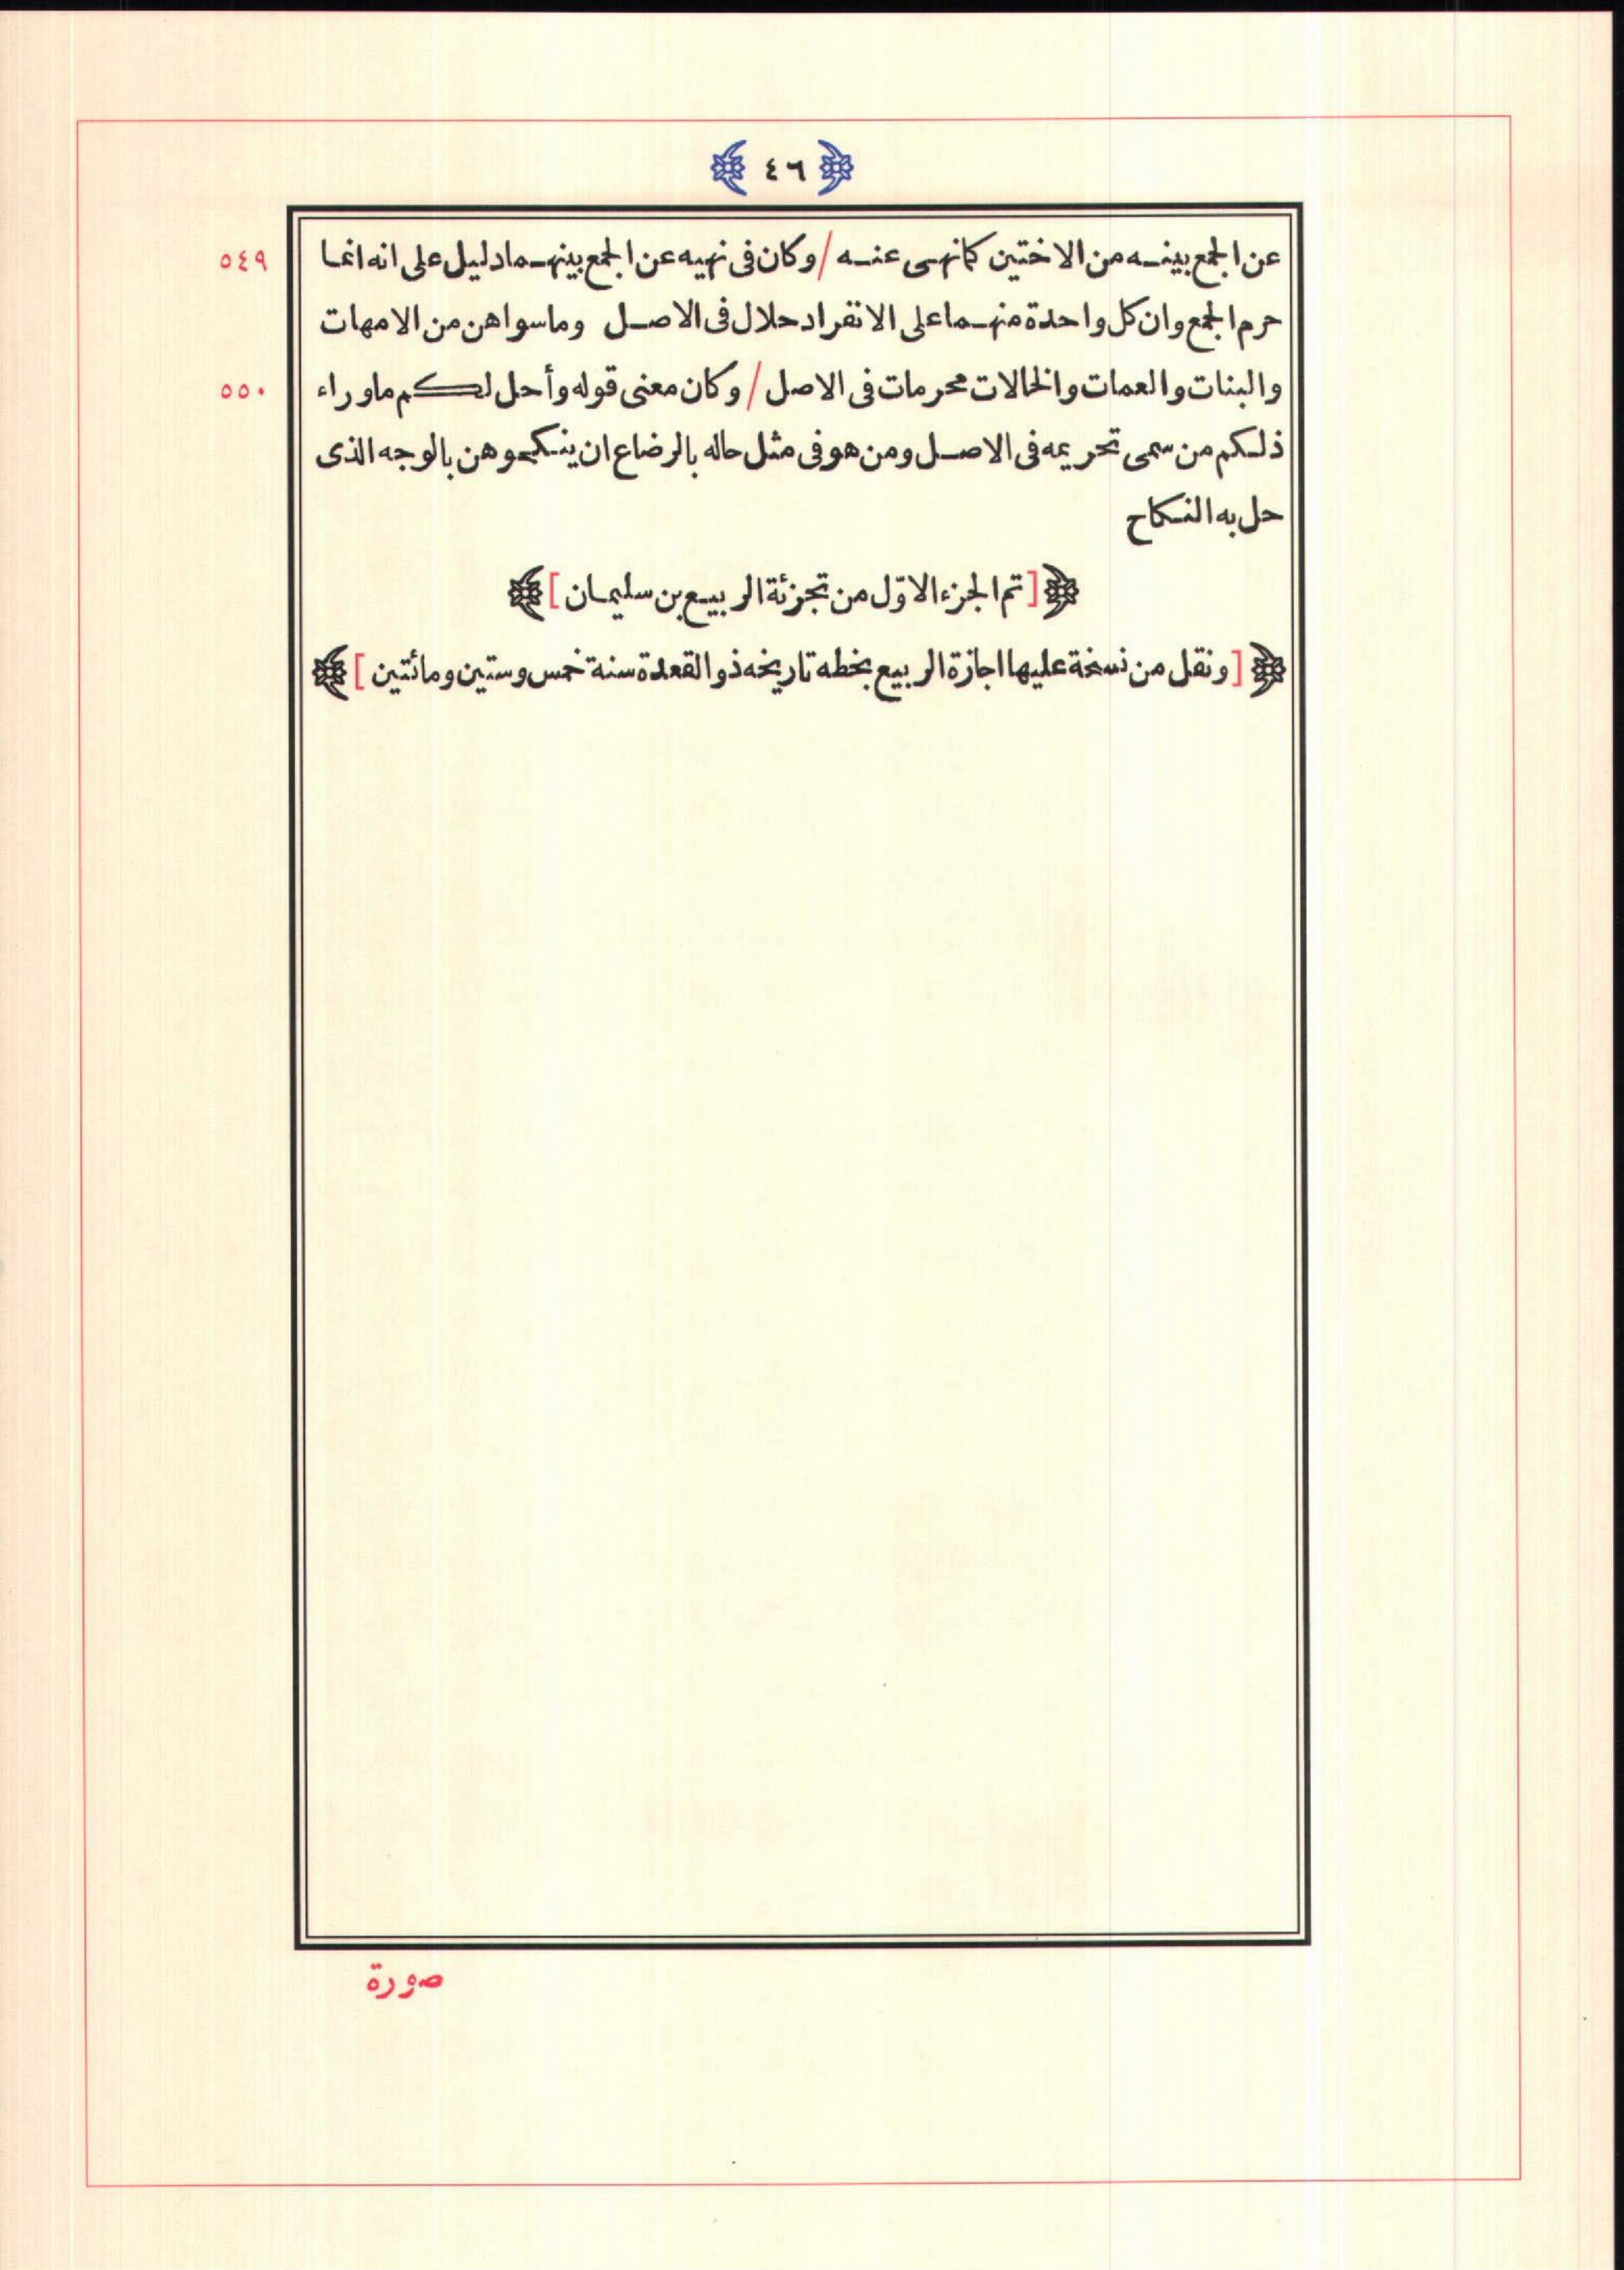 ﴿ ٤٦ ﴾
عن الجمع بينه من الاختين كما نهى عنه / وكان فى نهيه عن الجمع بينهما دليل على انه انما ٥٤٩
حرم الجمع وان كل واحدة منهما على الانفراد حلال فى الاصل وما سواهن من الامهات
والبنات والعمات والخالات محرمات فى الاصل / وكان معنى قوله وأحل لكم ما وراء ٥٥٠
ذلكم من سمى تحريمه فى الاصل ومن هو فى مثل حاله بالرضاع ان ينكحوهن بالوجه الذى
حل به النكاح
﴿[ تم الجزء الاوّل من تجزئة الربيع بن سليمان ]﴾
﴿[ ونقل من نسخة عليها اجازة الربيع بخطه تاريخه ذو القعدة سنة خمس وستين ومائتين ]﴾
صورة